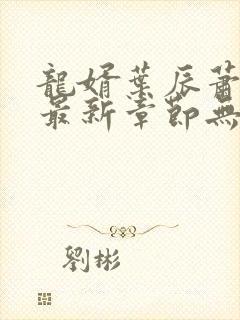 龍婿葉辰蕭
最新章節無
劉彬